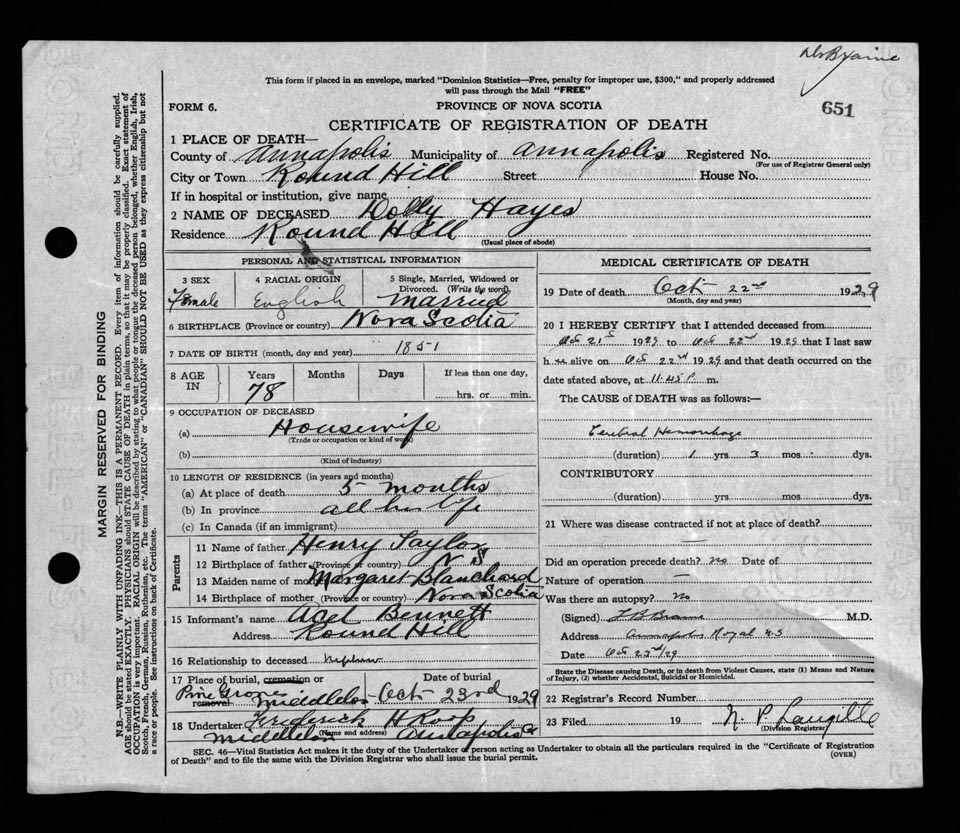 This form if placed in an envelope, marked "Dominion Statistics—Free, penalty for improper use, $300," and properly addressed
will pass through the Mail "FREE"
651
FORM 6.
PROVINCE OF NOVA SCOTIA
CERTIFICATE OF REGISTRATION OF DEATH
1 PLACE OF DEATH—
County of Annapolis Municipality of Annapolis Registered No.
(For use of Registrar General only)
City or Town Round Hill Street House No.
If in hospital or institution, give name
2 NAME OF DECEASED Dolly Hayes
Residence Round Hill
(Usual place of abode)
PERSONAL AND STATISTICAL INFORMATION
3 SEX Female
4 RACIAL ORIGIN English
5 Single, Married, Widowed or Divorced. (Write the word) Married
6 BIRTHPLACE (Province or country) Nova Scotia
7 DATE OF BIRTH (month, day and year) 1851
8 AGE IN Years 78 Months Days If less than one day, hrs. or min.
9 OCCUPATION OF DECEASED
(a) Housewife
(Trade or occupation or kind of work)
(b)
(Kind of industry)
10 LENGTH OF RESIDENCE (in years and months)
(a) At place of death 5 months
(b) In province all her life
(c) In Canada (if an immigrant)
Parents
11 Name of father Henry Saylor
12 Birthplace of father (Province or country) N S
13 Maiden name of mother Margaret Blanchard
14 Birthplace of mother (Province or country) Nova Scotia
15 Informant's name Bennett
Address Round Hill
16 Relationship to deceased Nephew
17 Place of burial, cremation or removal Date of burial
Pine Grove Middleton Oct 23rd 1929
18 Undertaker Frederick H Roop
(Name and address)
Middleton Annapolis Co
MEDICAL CERTIFICATE OF DEATH
19 Date of death Oct 22nd 1929
(Month, day and year)
20 I HEREBY CERTIFY that I attended deceased from
Oct 21st 1929 to Oct 22nd 1929 that I last saw
h er alive on Oct 22nd 1929 and that death occurred on the
date stated above, at 11.45 P. m.
The CAUSE of DEATH was as follows:—
Cerebral Hemorrhage
(duration) 1 yrs 3 mos dys.
CONTRIBUTORY
(duration) yrs. mos. dys.
21 Where was disease contracted if not at place of death?
Did an operation precede death? no Date of
Nature of operation —
Was there an autopsy? no
(Signed) M.D.
Address Annapolis Royal N.S
Date Oct 23rd/29
State the Disease causing Death, or in death from Violent Causes, state (1) Means and Nature
of Injury, (2) whether Accidental, Suicidal or Homicidal.
22 Registrar's Record Number
23 Filed 19 N. P. Langille
(Division Registrar)
SEC. 46—Vital Statistics Act makes it the duty of the Undertaker or person acting as Undertaker to obtain all the particulars required in the "Certificate of Registration
of Death" and to file the same with the Division Registrar who shall issue the burial permit.
(OVER)
MARGIN RESERVED FOR BINDING
N.B.—WRITE PLAINLY WITH UNFADING INK—THIS IS A PERMANENT RECORD. Every item of information should be carefully supplied.
AGE should be stated EXACTLY. PHYSICIANS should STATE CAUSE OF DEATH in plain terms, so that it may be properly classified. Exact statement of
OCCUPATION is very important. RACIAL ORIGIN will be described by stating to what people or tongue the deceased person belonged, whether English, Irish,
Scotch, French, German, Russian, Ruthenian, etc. The terms "AMERICAN" or "CANADIAN" SHOULD NOT BE USED as they express citizenship but not
a race or people. See instructions on back of Certificate.